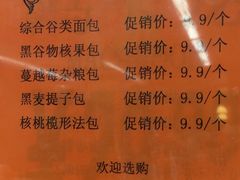 综合谷类面包 促销价：9.9/个
黑谷物核果包 促销价：9.9/个
蔓越莓杂粮包 促销价：9.9/个
黑麦提子包 促销价：9.9/个
核桃榄形法包 促销价：9.9/个
欢迎选购